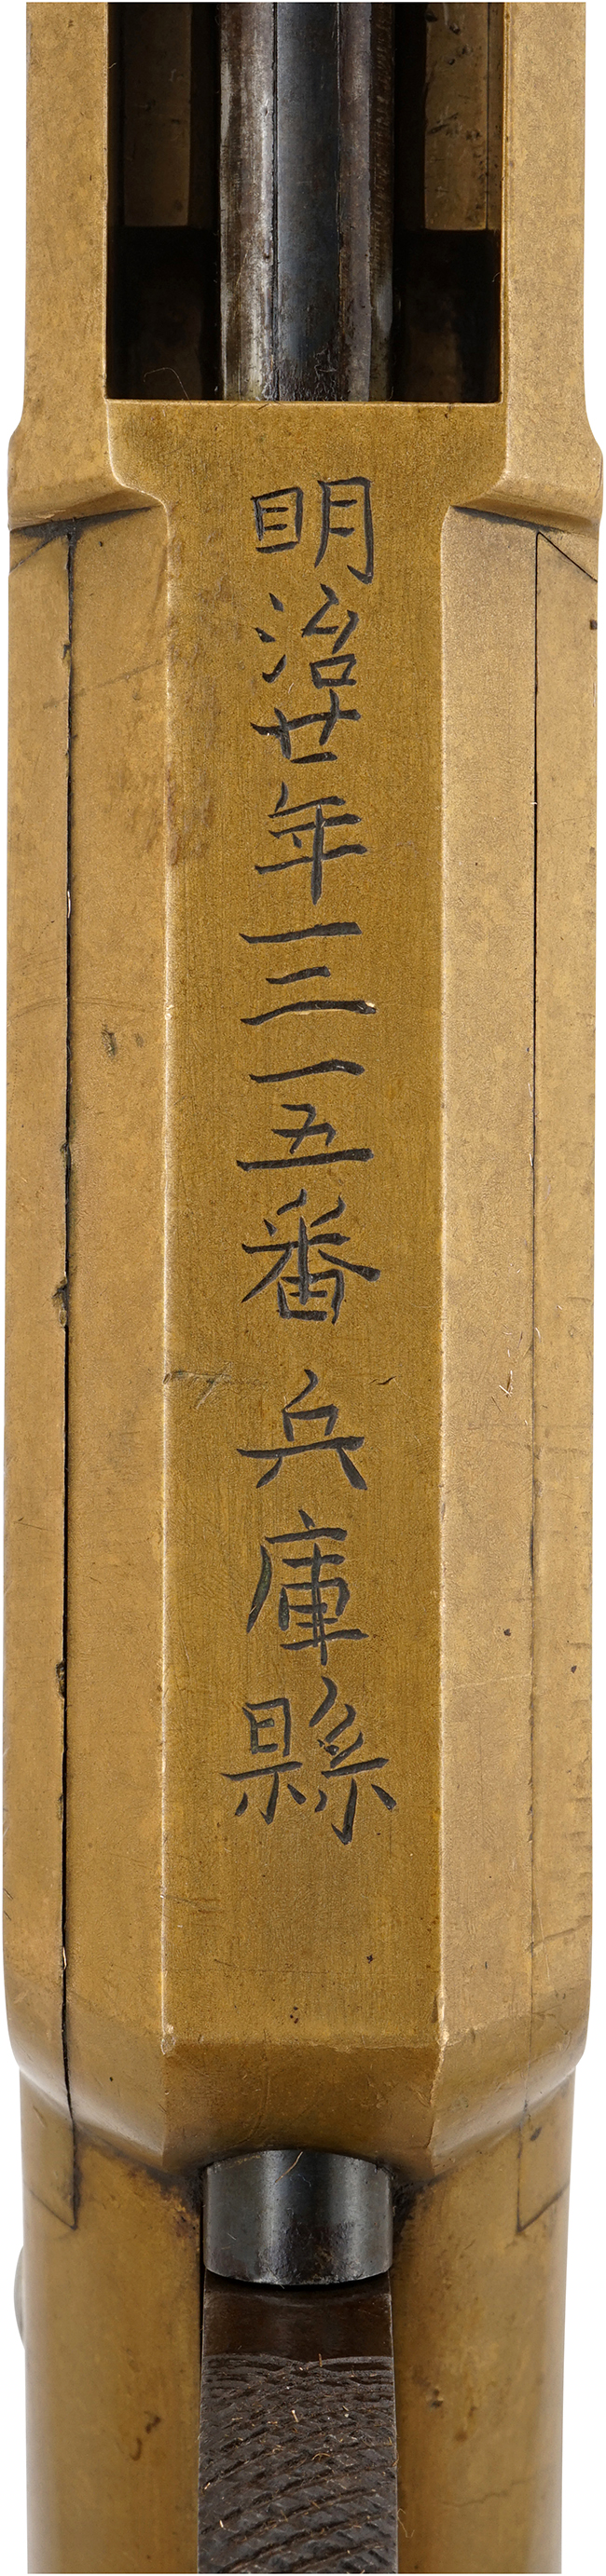 明治廿年三一五番 兵庫縣